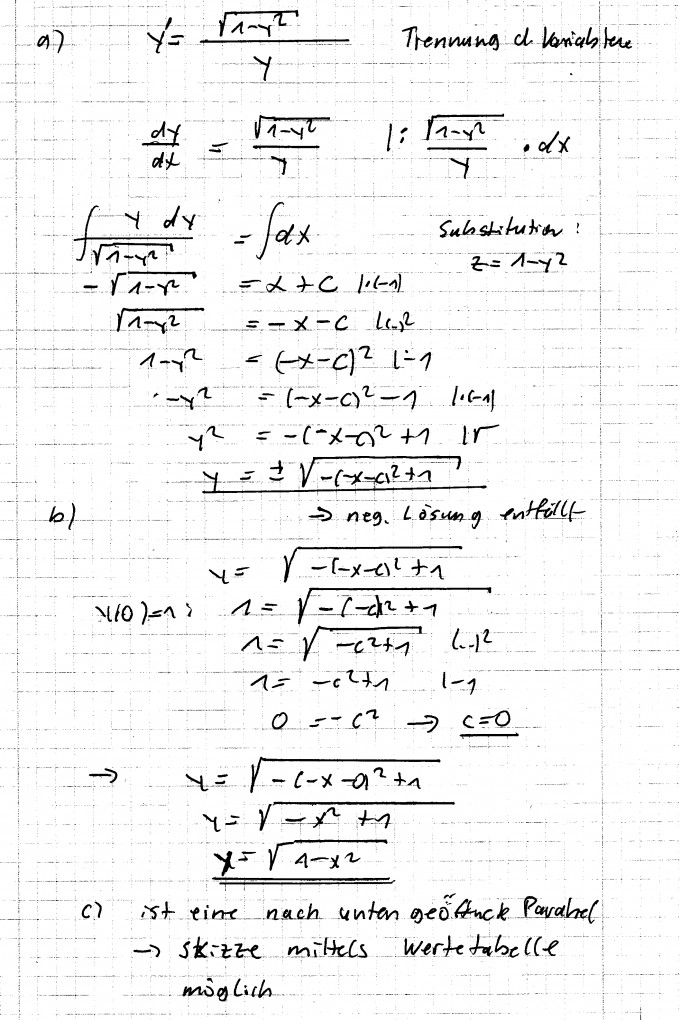 a) y' = √(1-y²) / y Trennung d. Variablen
dy/dx = √(1-y²) / y |: √(1-y²) / y · dx
∫ y dy / √(1-y²) = ∫dx Substitution:
z = 1-y²
-√(1-y²) = x + c |·(-1)
√(1-y²) = -x-c |(..)²
1-y² = (-x-c)² |-1
-y² = (-x-c)² -1 |·(-1)
y² = -(-x-c)² +1 |√
y = ± √(-(-x-c)² +1)
b) → neg. Lösung entfällt
y = √(-(-x-c)² +1)
y(0)=1: 1 = √(-(-c)² +1)
1 = √(-c²+1) |(..)²
1 = -c²+1 |-1
0 = -c² → c=0
→ y = √(-(-x-0)² +1)
y = √(-x² +1)
y = √(1-x²)
c) ist eine nach unten Parabel
→ skizze mittels Wertetabelle
möglich